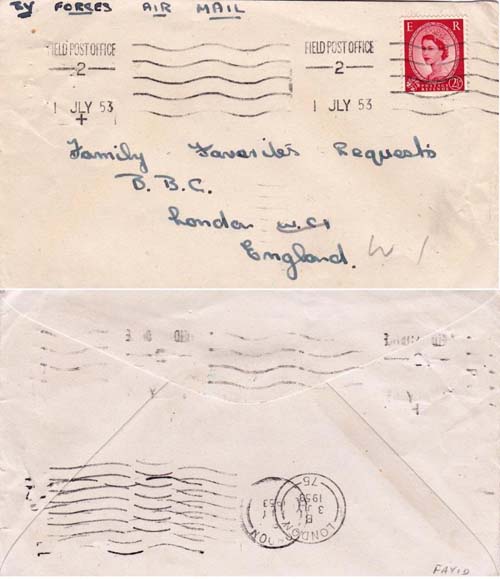 By FORCES AIR MAIL
FIELD POST OFFICE
2
1 JLY 53
+
FIELD POST OFFICE
2
1 JLY 53
E R
2½
Family Favorites Requests
B.B.C.
London W.C1
England. W1
LONDON
75
3 JLY
1953
LONDON
FAYID